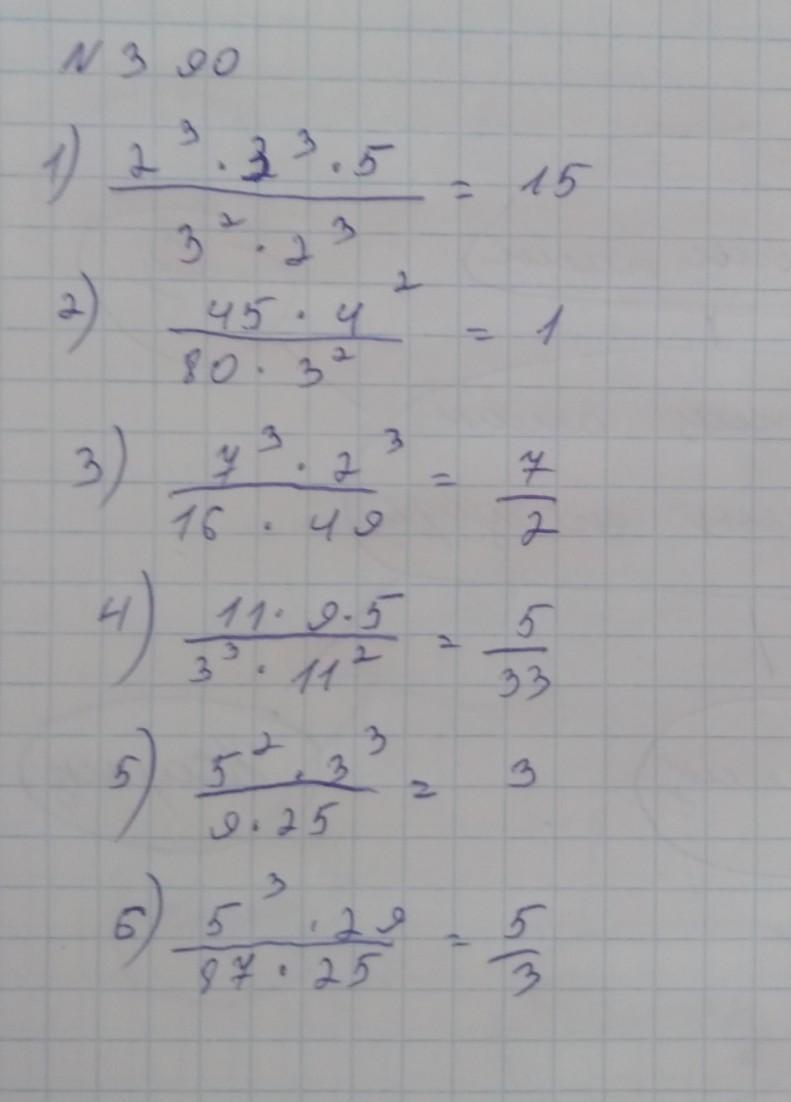 N 390
1) 2³ · 3³ · 5 / 3² · 2³ = 15
2) 45 · 4² / 80 · 3² = 1
3) 7³ · 2³ / 16 · 49 = 7/2
4) 11 · 9 · 5 / 3³ · 11² = 5/33
5) 5² · 3³ / 9 · 25 = 3
6) 5³ · 29 / 87 · 25 = 5/3